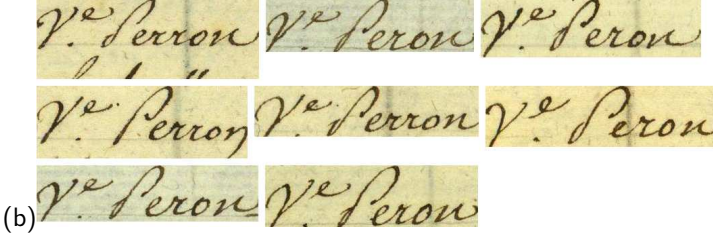 Ve. Perron Ve. Peron Ve. Peron
Ve. Perron Ve. Perron Ve. Peron
(b) Ve. Peron Ve. Peron